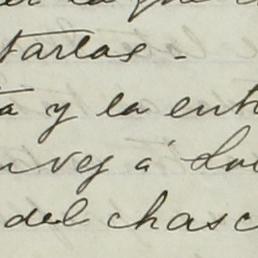 la que
tarlas -
ta y la ent
vez á Lo
del chasc